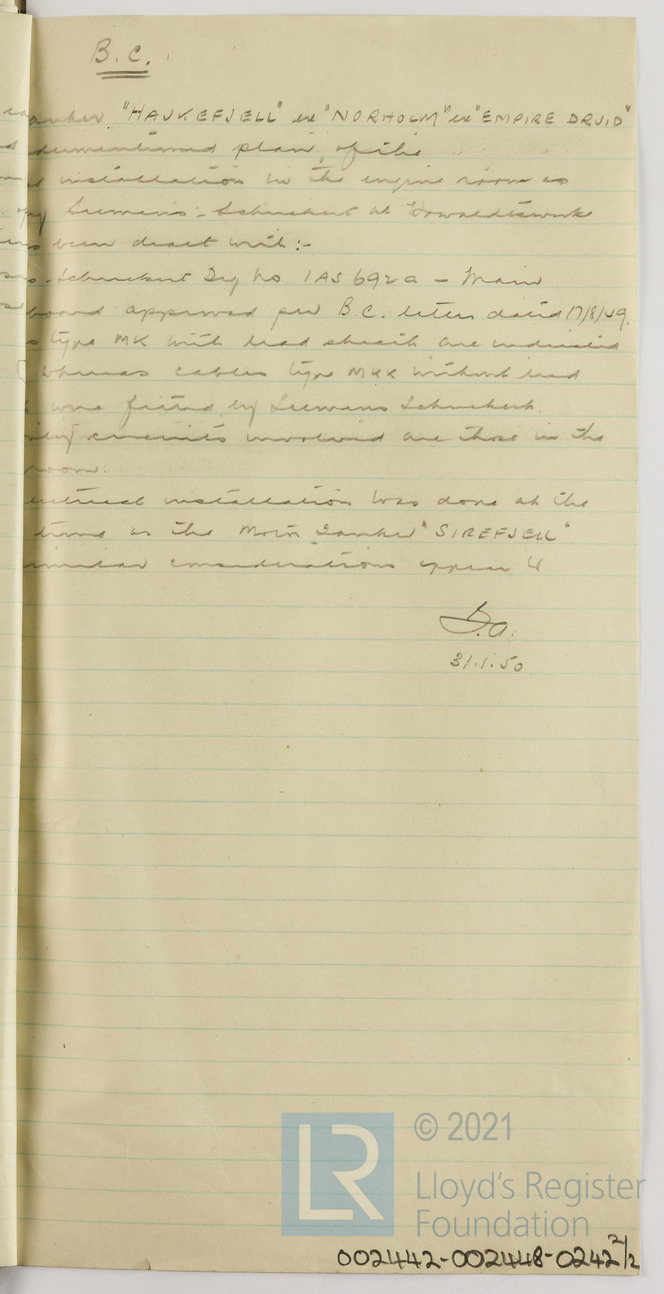 B.C.
"HAUKEFJELL" ex "NORHOLM" ex "EMPIRE DRUID"
plan of the
installation in the engine room as
by Siemens-Schuckert at Howaldtswerke
been dealt with:-
Schuckert Drg No 1AS 692a - Main
board approved per B.C. letter dated 17/8/49.
type MK with lead sheath are indicated
whereas cables type MKK without lead
were fitted by Siemens Schuckert.
circuits involved are those in the
room.
installation was done at the
time as the Motor Tanker "SIREFJELL"
similar considerations appear to
D.A.
31.1.50
LR
© 2021
Lloyd's Register
Foundation
002442-002448-0242 2/2